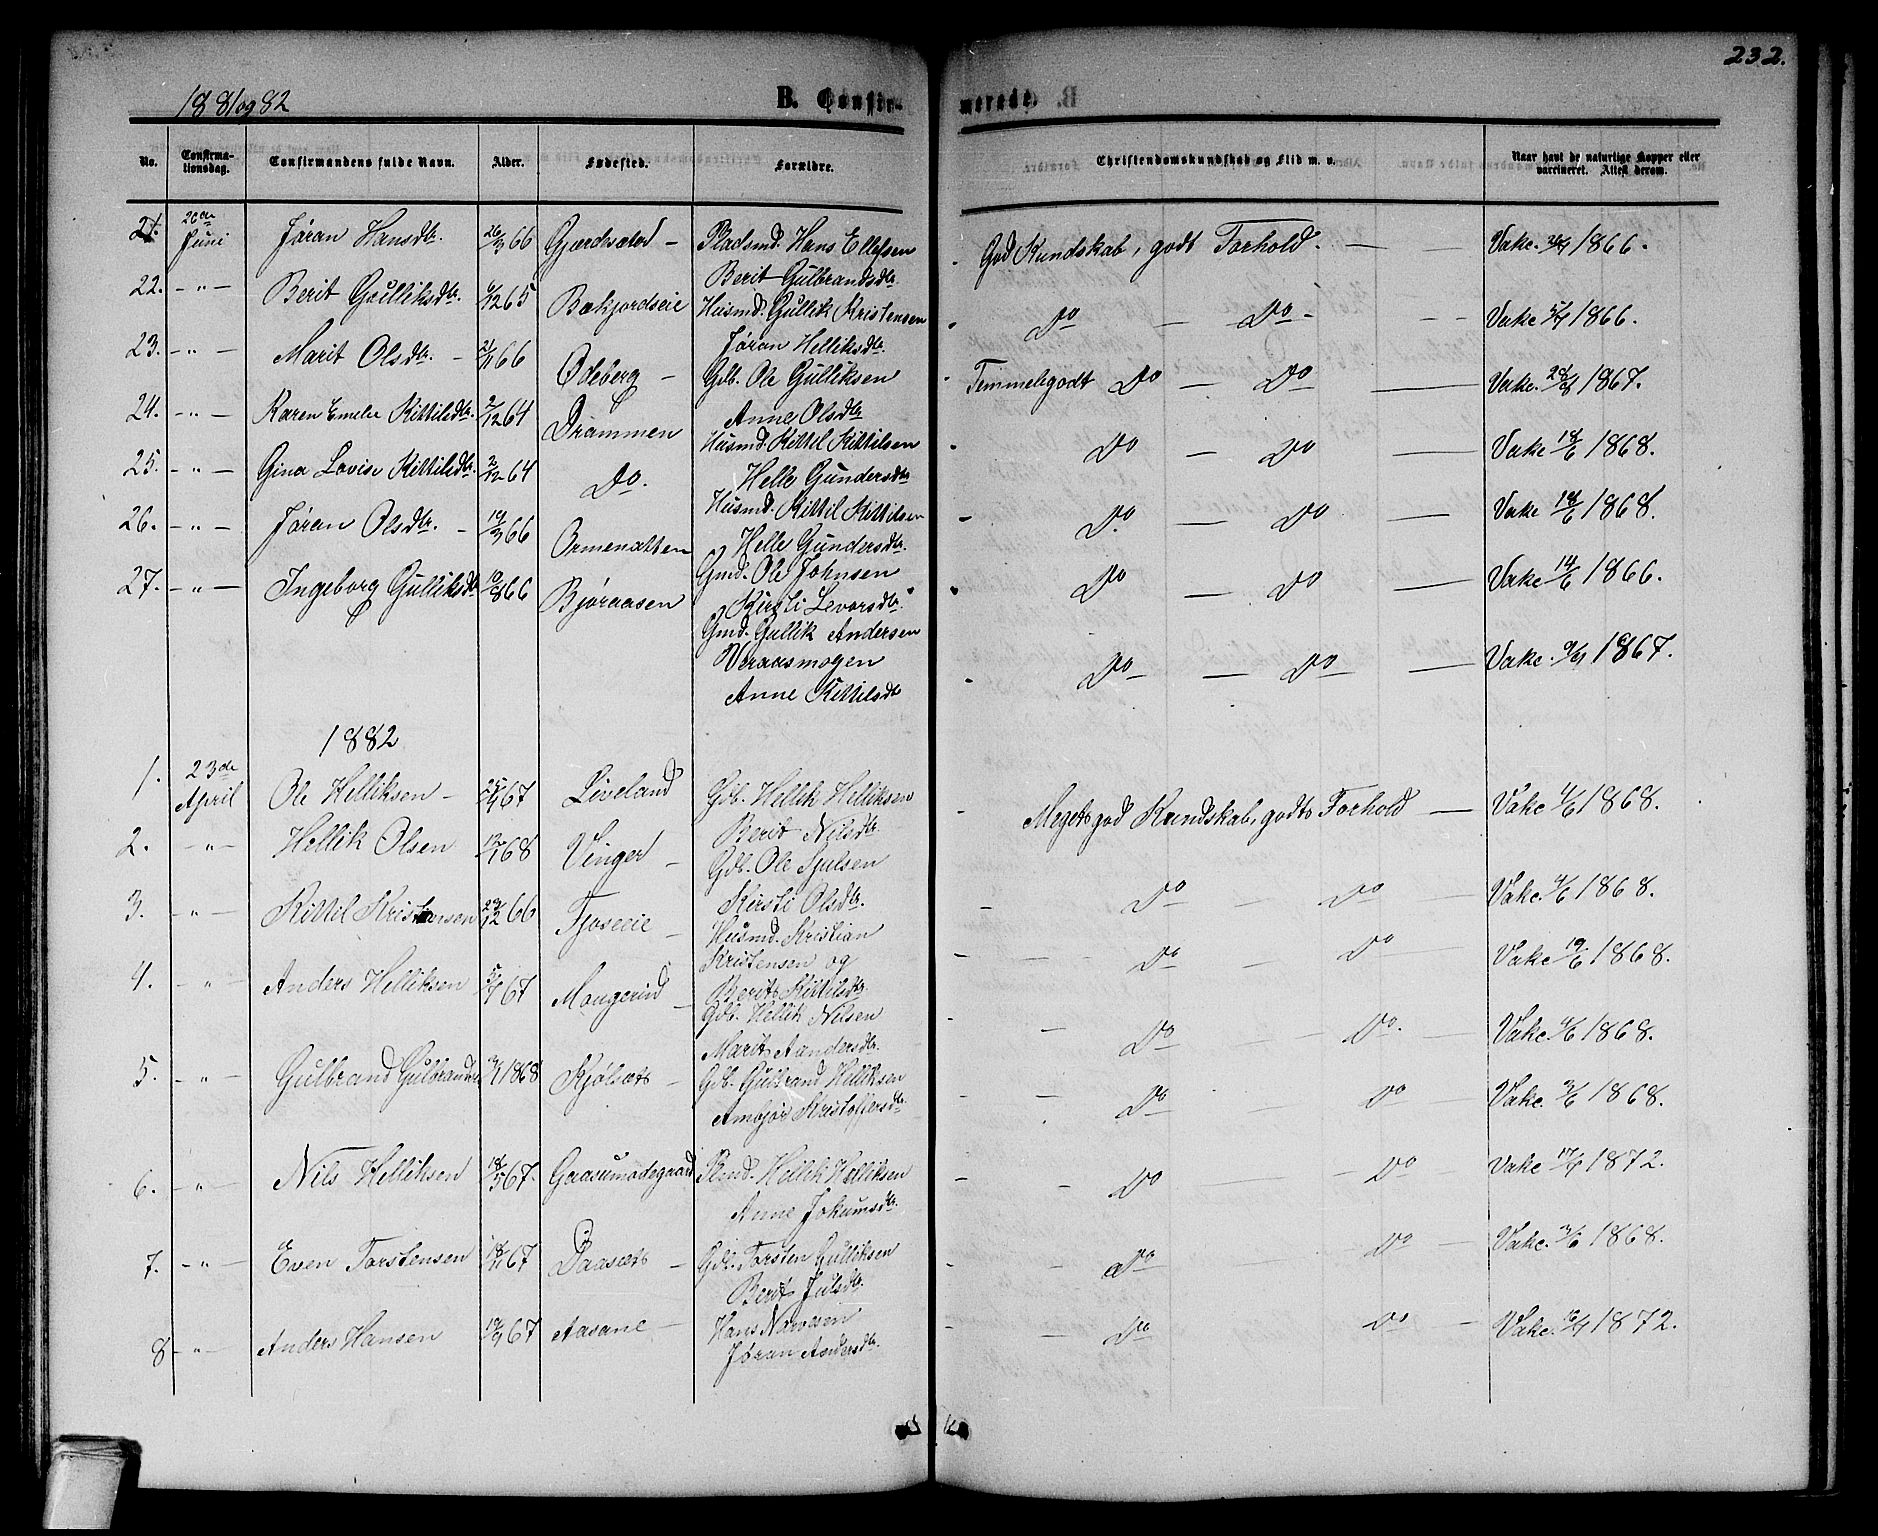 232.
1881 og 82
B. Confir-
merede.
No.
Confirma-
tionsdag.
Confirmandens fulde Navn.
Alder.
Fødested.
Forældre.
Christendomskundskab og Flid m. v.
Naar havt de naturlige Kopper eller
vaccineret. Attest derom.
21. 26de Juni Jøran Hansdtr. 26/3 66 Gjærdesætd – Pladsmd. Hans Ellefsen
Berit Gulbrandsdtr.
God Kundskab, godt Forhold. — — Vakc. 1866.
22. – " – Berit Gulliksdtr. 12 65 Bækjordseie Husmd. Gullik Kristensen
Jøran Helliksdtr.
Do — Do – – – Vakc 1866.
23. – " – Marit Olsdtr. – 2/11 66 Ødeberg – Gdb. Ole Gulliksen
Anne Olsdtr
Temmeligodt Do — Do — Vakc. 1867.
24. – " – Karen Emelie Kittilsdtr. 2/12 64 Drammen Husmd. Kittil Kittilsen
Helle Gundersdtr
Do — Do — Vakc 18/6 1868.
25. – " – Gina Lovise Kittilsdtr. 2/12 64 Do. Husmd. Kittil Kittilsen
Helle Gundersdtr.
Do — Do — Vakc 18/6 1868.
26. – " – Jøran Olsdtr. – 19/3 66 Ormenatten Gmd. Ole Johnsen
Kirsti Levorsdtr.
Do — Do — Vakc 14/6 1866.
27. – " – Ingeborg Gulliksdtr 10/8 66 Bjøraasen Gmd. Gullik Andersen
Veraasmogen
Anne Kittilsdt
Do — Do — Vakc. 1867.
1882
1. 23de April Ole Helliksen – 25/4 67 Liveland Gdb. Hellik Helliksen
Berit Nilsdtr.
Meget god Kundskab, godt Forhold — Vakc 4/6 1868.
2. – " – Hellik Olsen 12/1 68 Vinger – Gdb. Ole Juelsen
Kirsti Olsdtr.
Do — Do — Vakc. 4/6 1868.
3. – " – Kittil Kristensen 29/12 66 Fjoseeie – Husmd. Kristian
Kristensen og
Berit Kittilsdtr.
Do — Do — Vakc 19/6 1868.
4. – " – Anders Helliksen 67 Mougerud – Gdb. Hellik Nilsen
Marit Andersdtr.
Do — Do. — Vakc. 4/6 1868.
5. – " – Gulbrand Gulbrandsen 1868 Kjølsæt – Gdb. Gulbrand Helliksen
Amojør Kristoffersdtr.
Do — Do — Vakc. 1868.
6. – " – Nils Helliksen 18/5 67. Gaasumødegaard Plmd. Hellik Helliksen
Anne Jokumsdtr.
Do — Do — Vakc 1872.
7. – " – Even Torstensen 67 Daasæt – Gdb. Torsten Gulliksen
Berit Julsdtr.
Do — Do — Vakc. 1868.
8 – " – Anders Hansen 67 Aasane – Hans Narvesen
Jøran Andersdtr.
Do Do – Vakc. 1872.